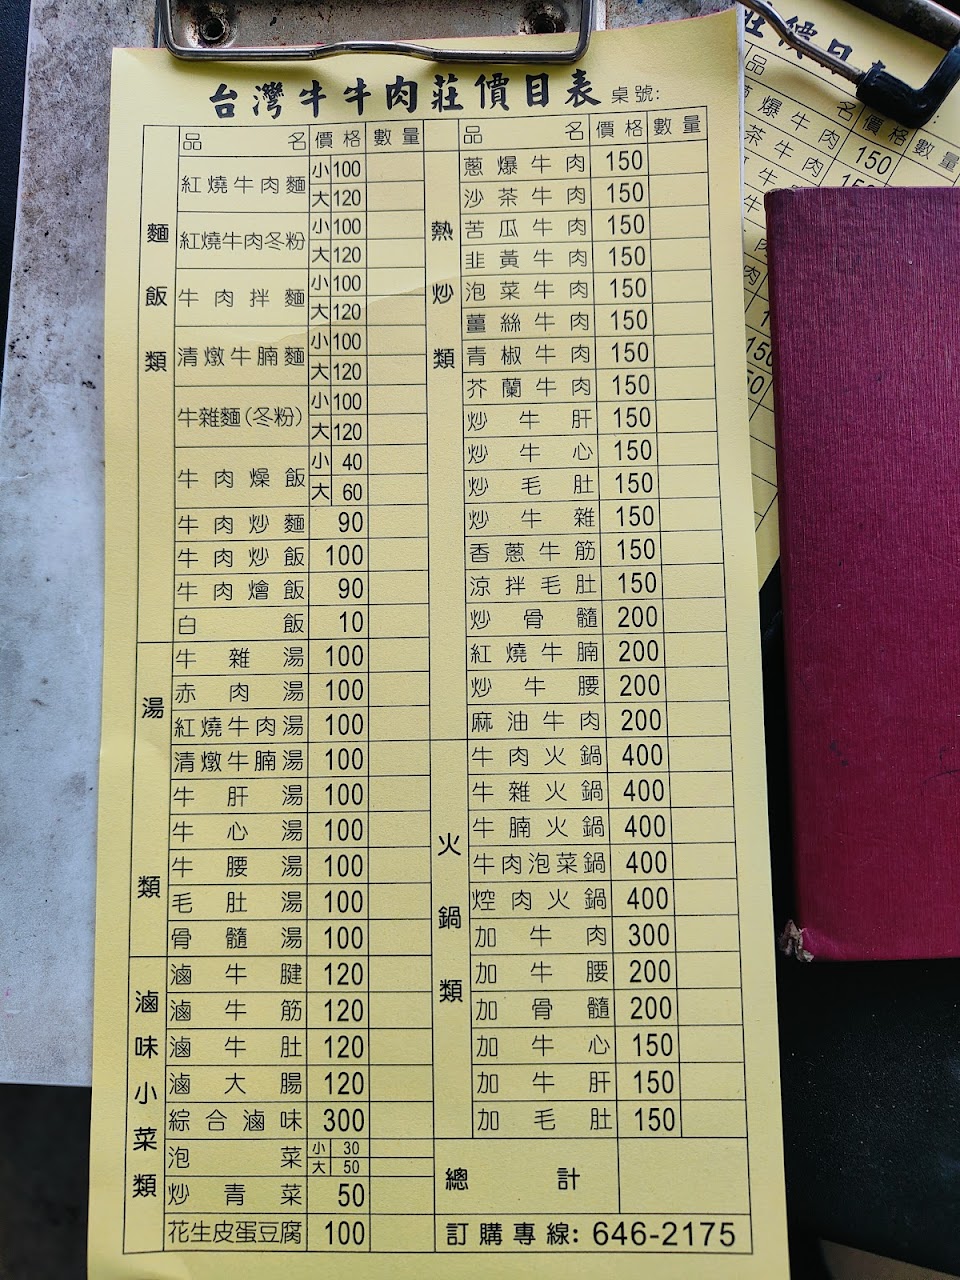 台灣牛牛肉莊價目表 桌號:
麵飯類
品名 價格 數量
紅燒牛肉麵 小 100
大 120
紅燒牛肉冬粉 小 100
大 120
牛肉拌麵 小 100
大 120
清燉牛腩麵 小 100
大 120
牛雜麵(冬粉) 小 100
大 120
牛肉燥飯 小 40
大 60
牛肉炒麵 90
牛肉炒飯 100
牛肉燴飯 90
白飯 10
湯類
牛雜湯 100
赤肉湯 100
紅燒牛肉湯 100
清燉牛腩湯 100
牛肝湯 100
牛心湯 100
牛腰湯 100
毛肚湯 100
骨髓湯 100
滷味小菜類
滷牛腱 120
滷牛筋 120
滷牛肚 120
滷大腸 120
綜合滷味 300
泡菜 小 30
大 50
炒青菜 50
花生皮蛋豆腐 100
熱炒類
品名 價格 數量
蔥爆牛肉 150
沙茶牛肉 150
苦瓜牛肉 150
韭黃牛肉 150
泡菜牛肉 150
薑絲牛肉 150
青椒牛肉 150
芥蘭牛肉 150
炒牛肝 150
炒牛心 150
炒毛肚 150
炒牛雜 150
香蔥牛筋 150
涼拌毛肚 150
炒骨髓 200
紅燒牛腩 200
炒牛腰 200
麻油牛肉 200
火鍋類
牛肉火鍋 400
牛雜火鍋 400
牛腩火鍋 400
牛肉泡菜鍋 400
焢肉火鍋 400
加牛肉 300
加牛腰 200
加骨髓 200
加牛心 150
加牛肝 150
加毛肚 150
總計
訂購專線: 646-2175
莊價目表
品名 價格 數量
爆牛肉 150
茶牛肉